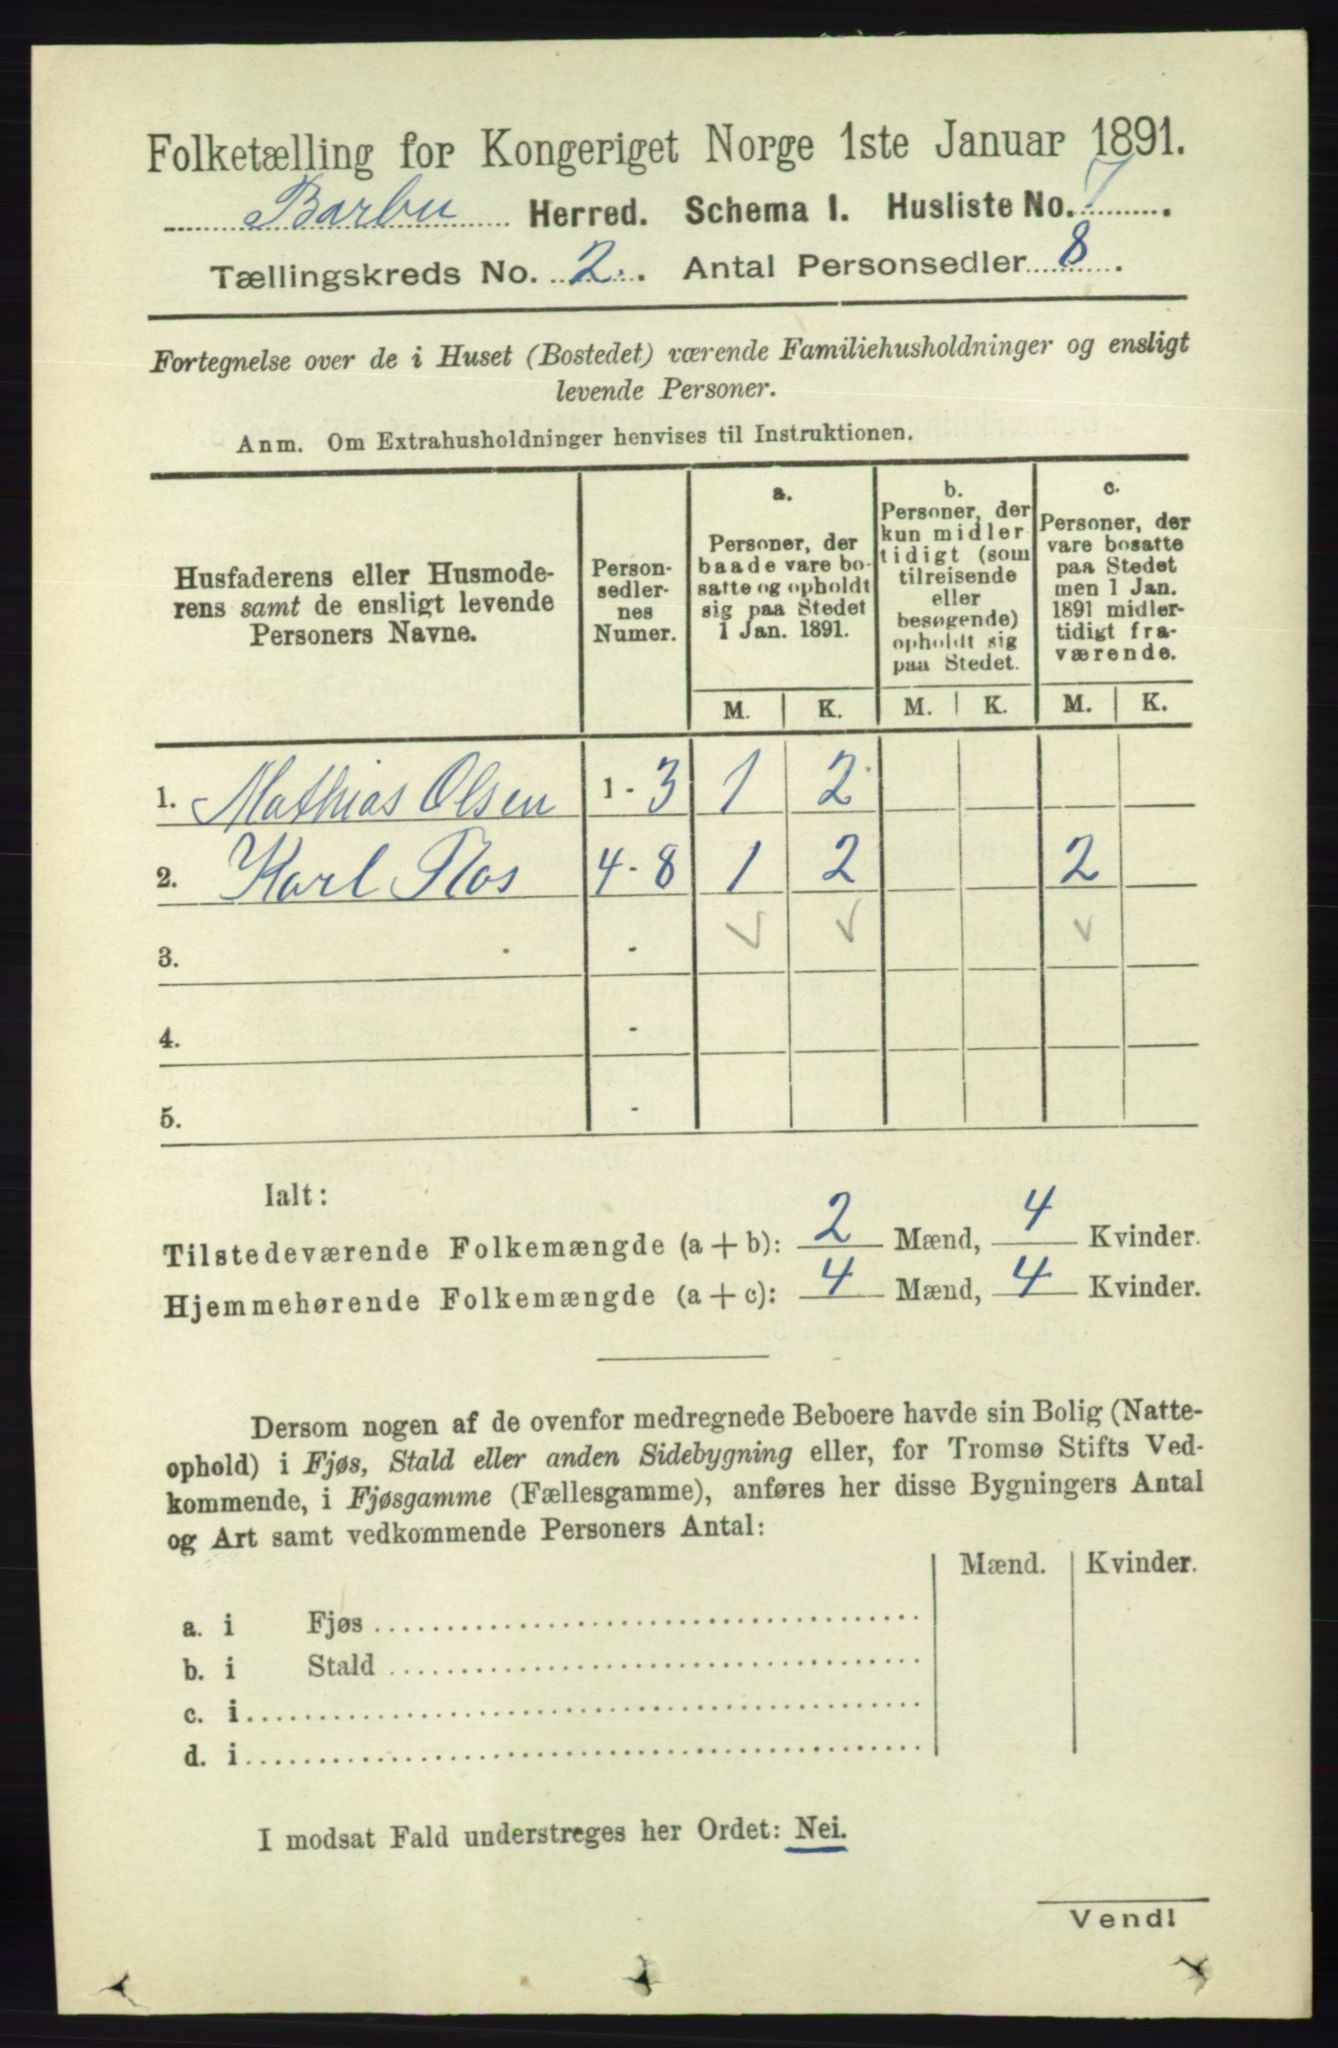 Folketælling for Kongeriget Norge 1ste Januar 1891.
Barbu Herred. Schema 1. Husliste No. 7
Tællingskreds No. 2. Antal Personsedler 8.
Fortegnelse over de i Huset (Bostedet) værende Familiehusholdninger og ensligt
levende Personer.
Anm. Om Extrahusholdninger henvises til Instruktionen.
Husfaderens eller Husmode-
rens samt de ensligt levende
Personers Navne.
Person-
sedler-
nes
Numer.
a.
Personer, der
baade vare bo-
satte og opholdt
sig paa Stedet
1 Jan. 1891.
b.
Personer, der
kun midler
tidigt (som
tilreisende
eller
besøgende)
opholdt sig
paa Stedet.
c.
Personer, der
vare bosatte
paa Stedet
men 1 Jan.
1891 midler-
tidigt fra-
værende.
M. K. M. K. M. K.
1. Mathias Olsen 1-3 1 2
2. Karl Flos 4-8 1 2 2
3. -
4. -
5. -
Ialt:
Tilstedeværende Folkemængde (a+b): 2 Mænd, 4 Kvinder.
Hjemmehørende Folkemængde (a+c): 4 Mænd, 4 Kvinder.
Dersom nogen af de ovenfor medregnede Beboere havde sin Bolig (Natte-
ophold) i Fjøs, Stald eller anden Sidebygning eller, for Tromsø Stifts Ved-
kommende, i Fjøsgamme (Fællesgamme), anføres her disse Bygningers Antal
og Art samt vedkommende Personers Antal:
Mænd. Kvinder.
a. i Fjøs
b. i Stald
c. i
d. i
I modsat Fald understreges her Ordet: Nei.
Vendl